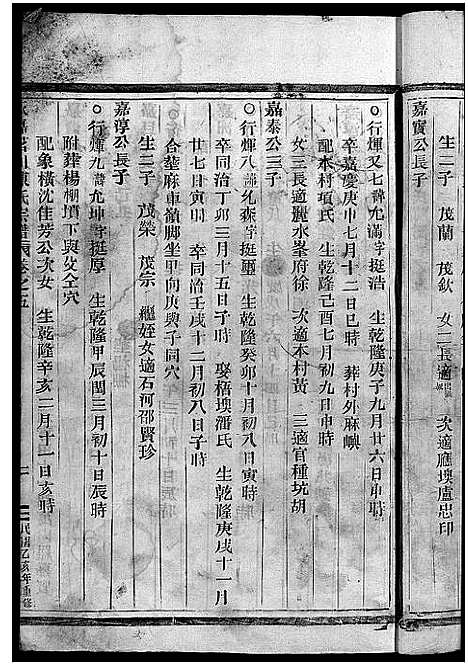 生二子 茂蘭 茂欽 女二長適 次適應墺盧忠印
嘉實公長子
○行煇又七諱允滿字挺浩 生乾隆庚子九月廿六日申時
卒嘉慶庚申七月十二日巳時 葬村外麻嶼
配本村項氏 生乾隆己酉七月初九日申時
女三長適麗水峯府徐 次適本村黃 三適官種坑胡
嘉泰公三子
○行煇八諱允森字挺璽 生乾隆癸卯十月初八日寅時
卒同治丁卯三月十五日子時 娶梧墺潘氏 生乾隆庚戌十一月
廿七日寅時 卒同治壬戌十二月初八日子時
合塟麻車嶺脚坐甲向庚與子同穴
生二子 茂榮 茂宗 繼姪女適石河邵賢珍
嘉淳公長子
○行煇九諱允坤字挺厚 生乾隆甲辰閏三月初十日辰時
附葬楊棚墳下與父仝穴
配象橫沈佳芳公次女 生乾隆辛亥二月十一日亥時
氏宗譜
之五
民國乙亥年重修